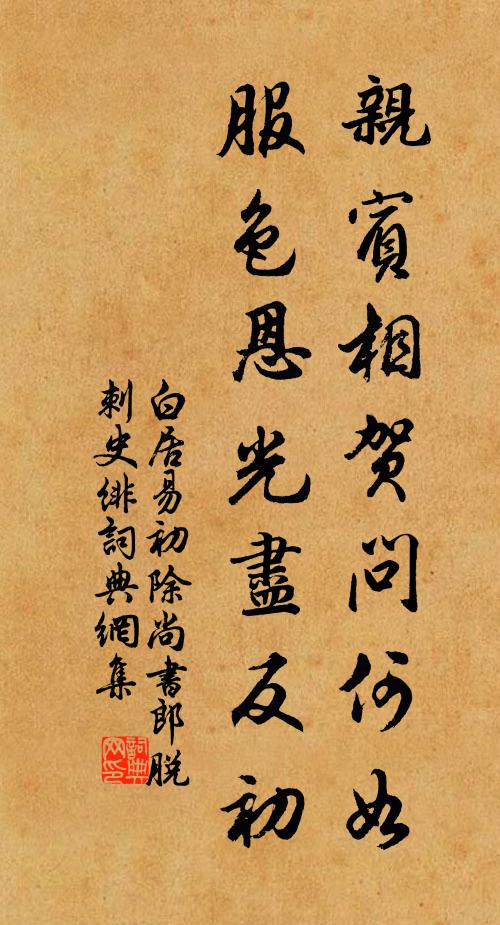 親賓相賀問何如
服色恩光盡反初
白居易初除尚書郎脫
刺史緋詞典網集
詞典網印